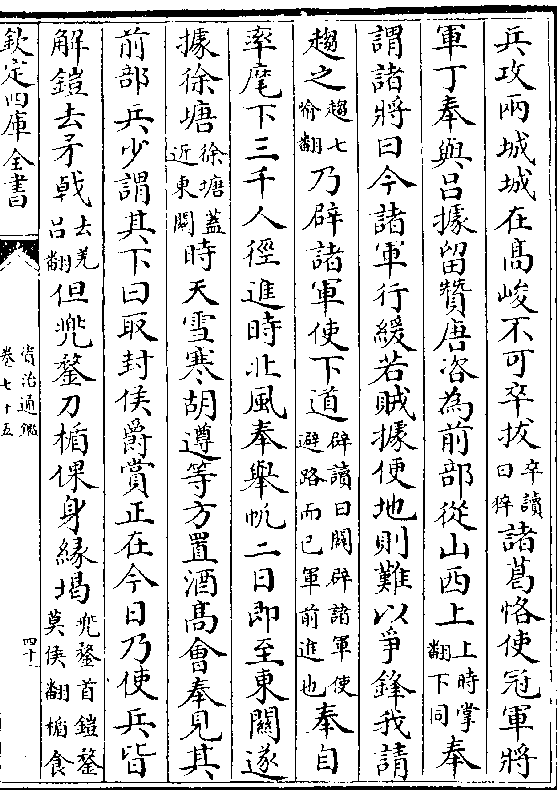 兵攻兩城城在髙峻不可卒㧞卒讀曰猝諸葛恪使冠軍將
軍丁奉與吕據留贊唐咨為前部從山西上上時掌翻下同奉
謂諸將曰今諸軍行緩若賊據便地則難以爭鋒我請
趨之趨七喻翻乃辟諸軍使下道辟讀曰闢辟諸軍使避路而已軍前進也奉自
率麾下三千人徑進時北風奉舉帆二日即至東關遂
據徐塘徐塘蓋近東關時天雪寒胡遵等方置酒髙會奉見其
前部兵少謂其下曰取封侯爵賞正在今日乃使兵皆
解鎧去矛戟去羌吕翻但兜鍪刀楯倮身緣堨兜鍪首鎧鍪莫侯翻楯食
欽定四庫全書
資治通鑑
卷七十五
四十